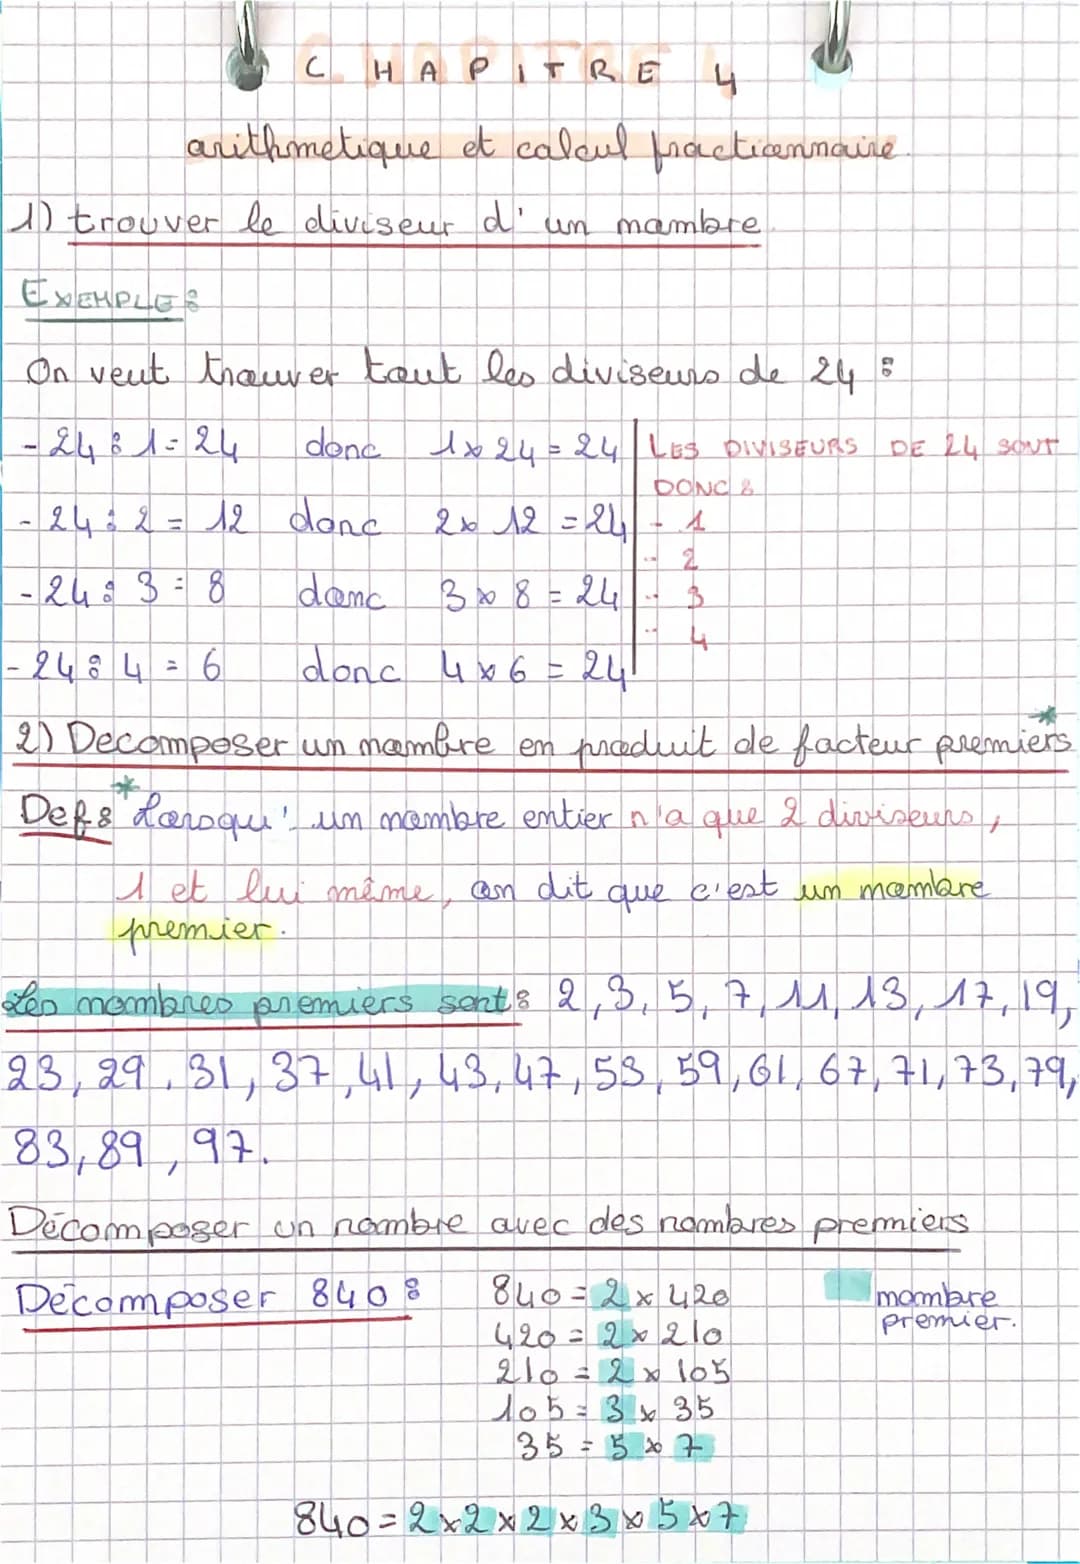 CHAPITRE 4
arithmetique et calcul fractionnaire.
1) trouver le diviseur d'un nombre.
EXEMPLE :
On veut trouver tout les diviseurs de 24 :
- 24 : 1 = 24 donc 1 x 24 = 24
- 24 : 2 = 12 donc 2 x 12 = 24
- 24 : 3 = 8 donc 3 x 8 = 24
- 24 : 4 = 6 donc 4 x 6 = 24
LES DIVISEURS DE 24 SONT
DONC :
- 1
- 2
- 3
- 4
2) Decomposer un nombre en produit de facteur premiers *
Def : * Lorsqu'un nombre entier n'a que 2 diviseurs,
1 et lui même, on dit que c'est un nombre
premier.
Les nombres premiers sont : 2, 3, 5, 7, 11, 13, 17, 19,
23, 29, 31, 37, 41, 43, 47, 53, 59, 61, 67, 71, 73, 79,
83, 89, 97.
Décomposer un nombre avec des nombres premiers
Décomposer 840 :
840 = 2 x 420
420 = 2 x 210
210 = 2 x 105
105 = 3 x 35
35 = 5 x 7
nombre
premier.
840 = 2 x 2 x 2 x 3 x 5 x 7